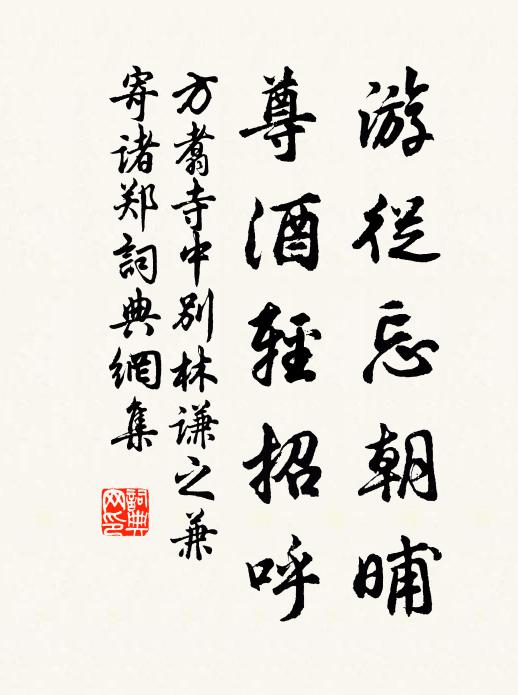 游從忘朝晡
尊酒輕招呼
方翥寺中別林謙之兼
寄诸郑詞典網集
詞典网印